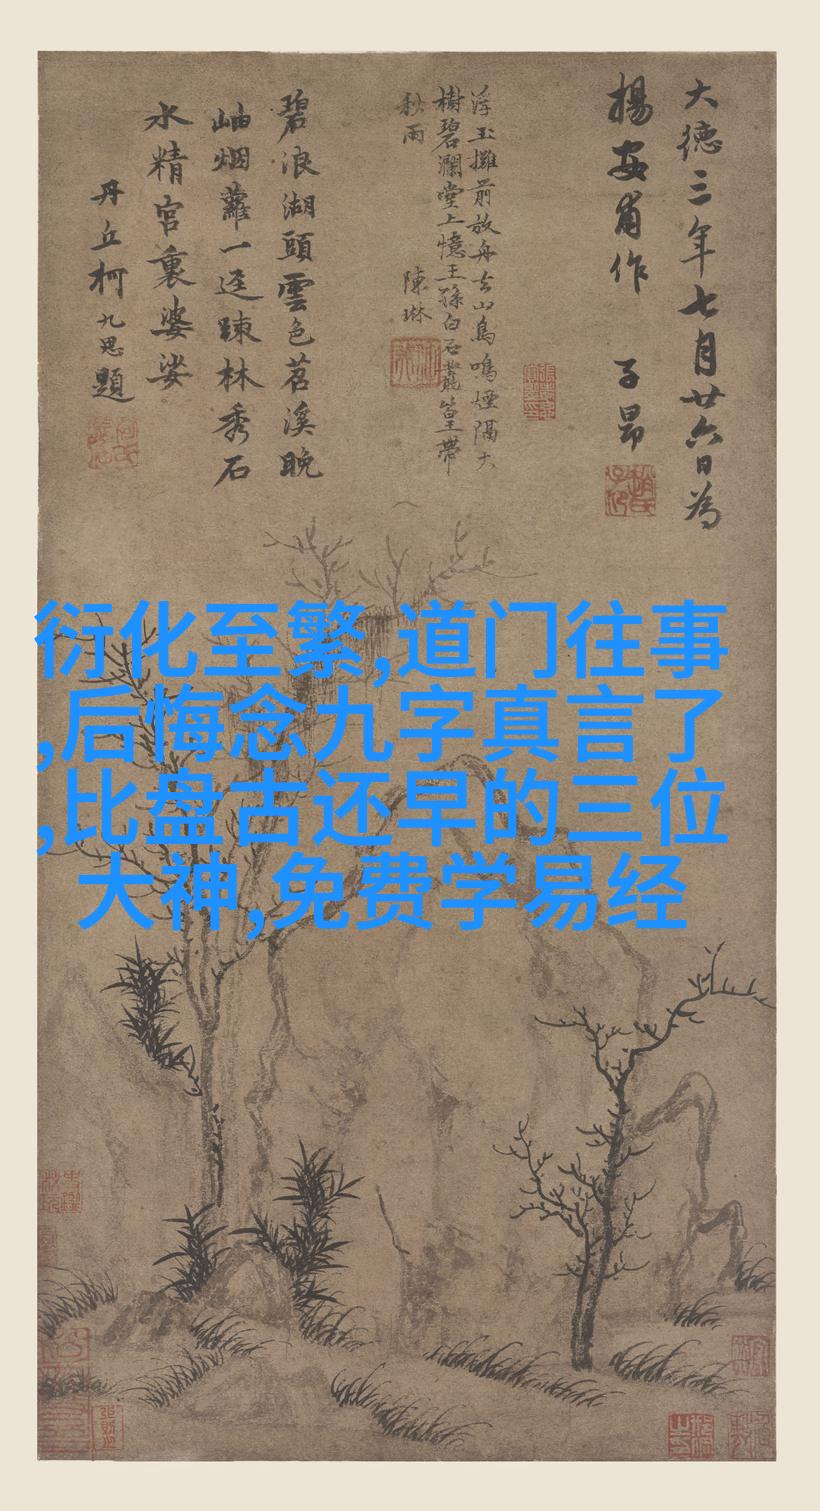 大德三年七月廿六日為
楊安甫作 子昂
浮玉攤前放舟去山鳥鳴煙隔大
樹碧瀾堂上憶王孫白石叢篁帶
秋雨 陳琳
碧浪湖頭雲色苕溪晚
岫烟蘿一逕踈林秀石
水精宮裏婆娑
丹丘柯九思題
衍化至繁,道门往事
,后悔念九字真言了
,比盘古还早的三位
大神,免费学易经